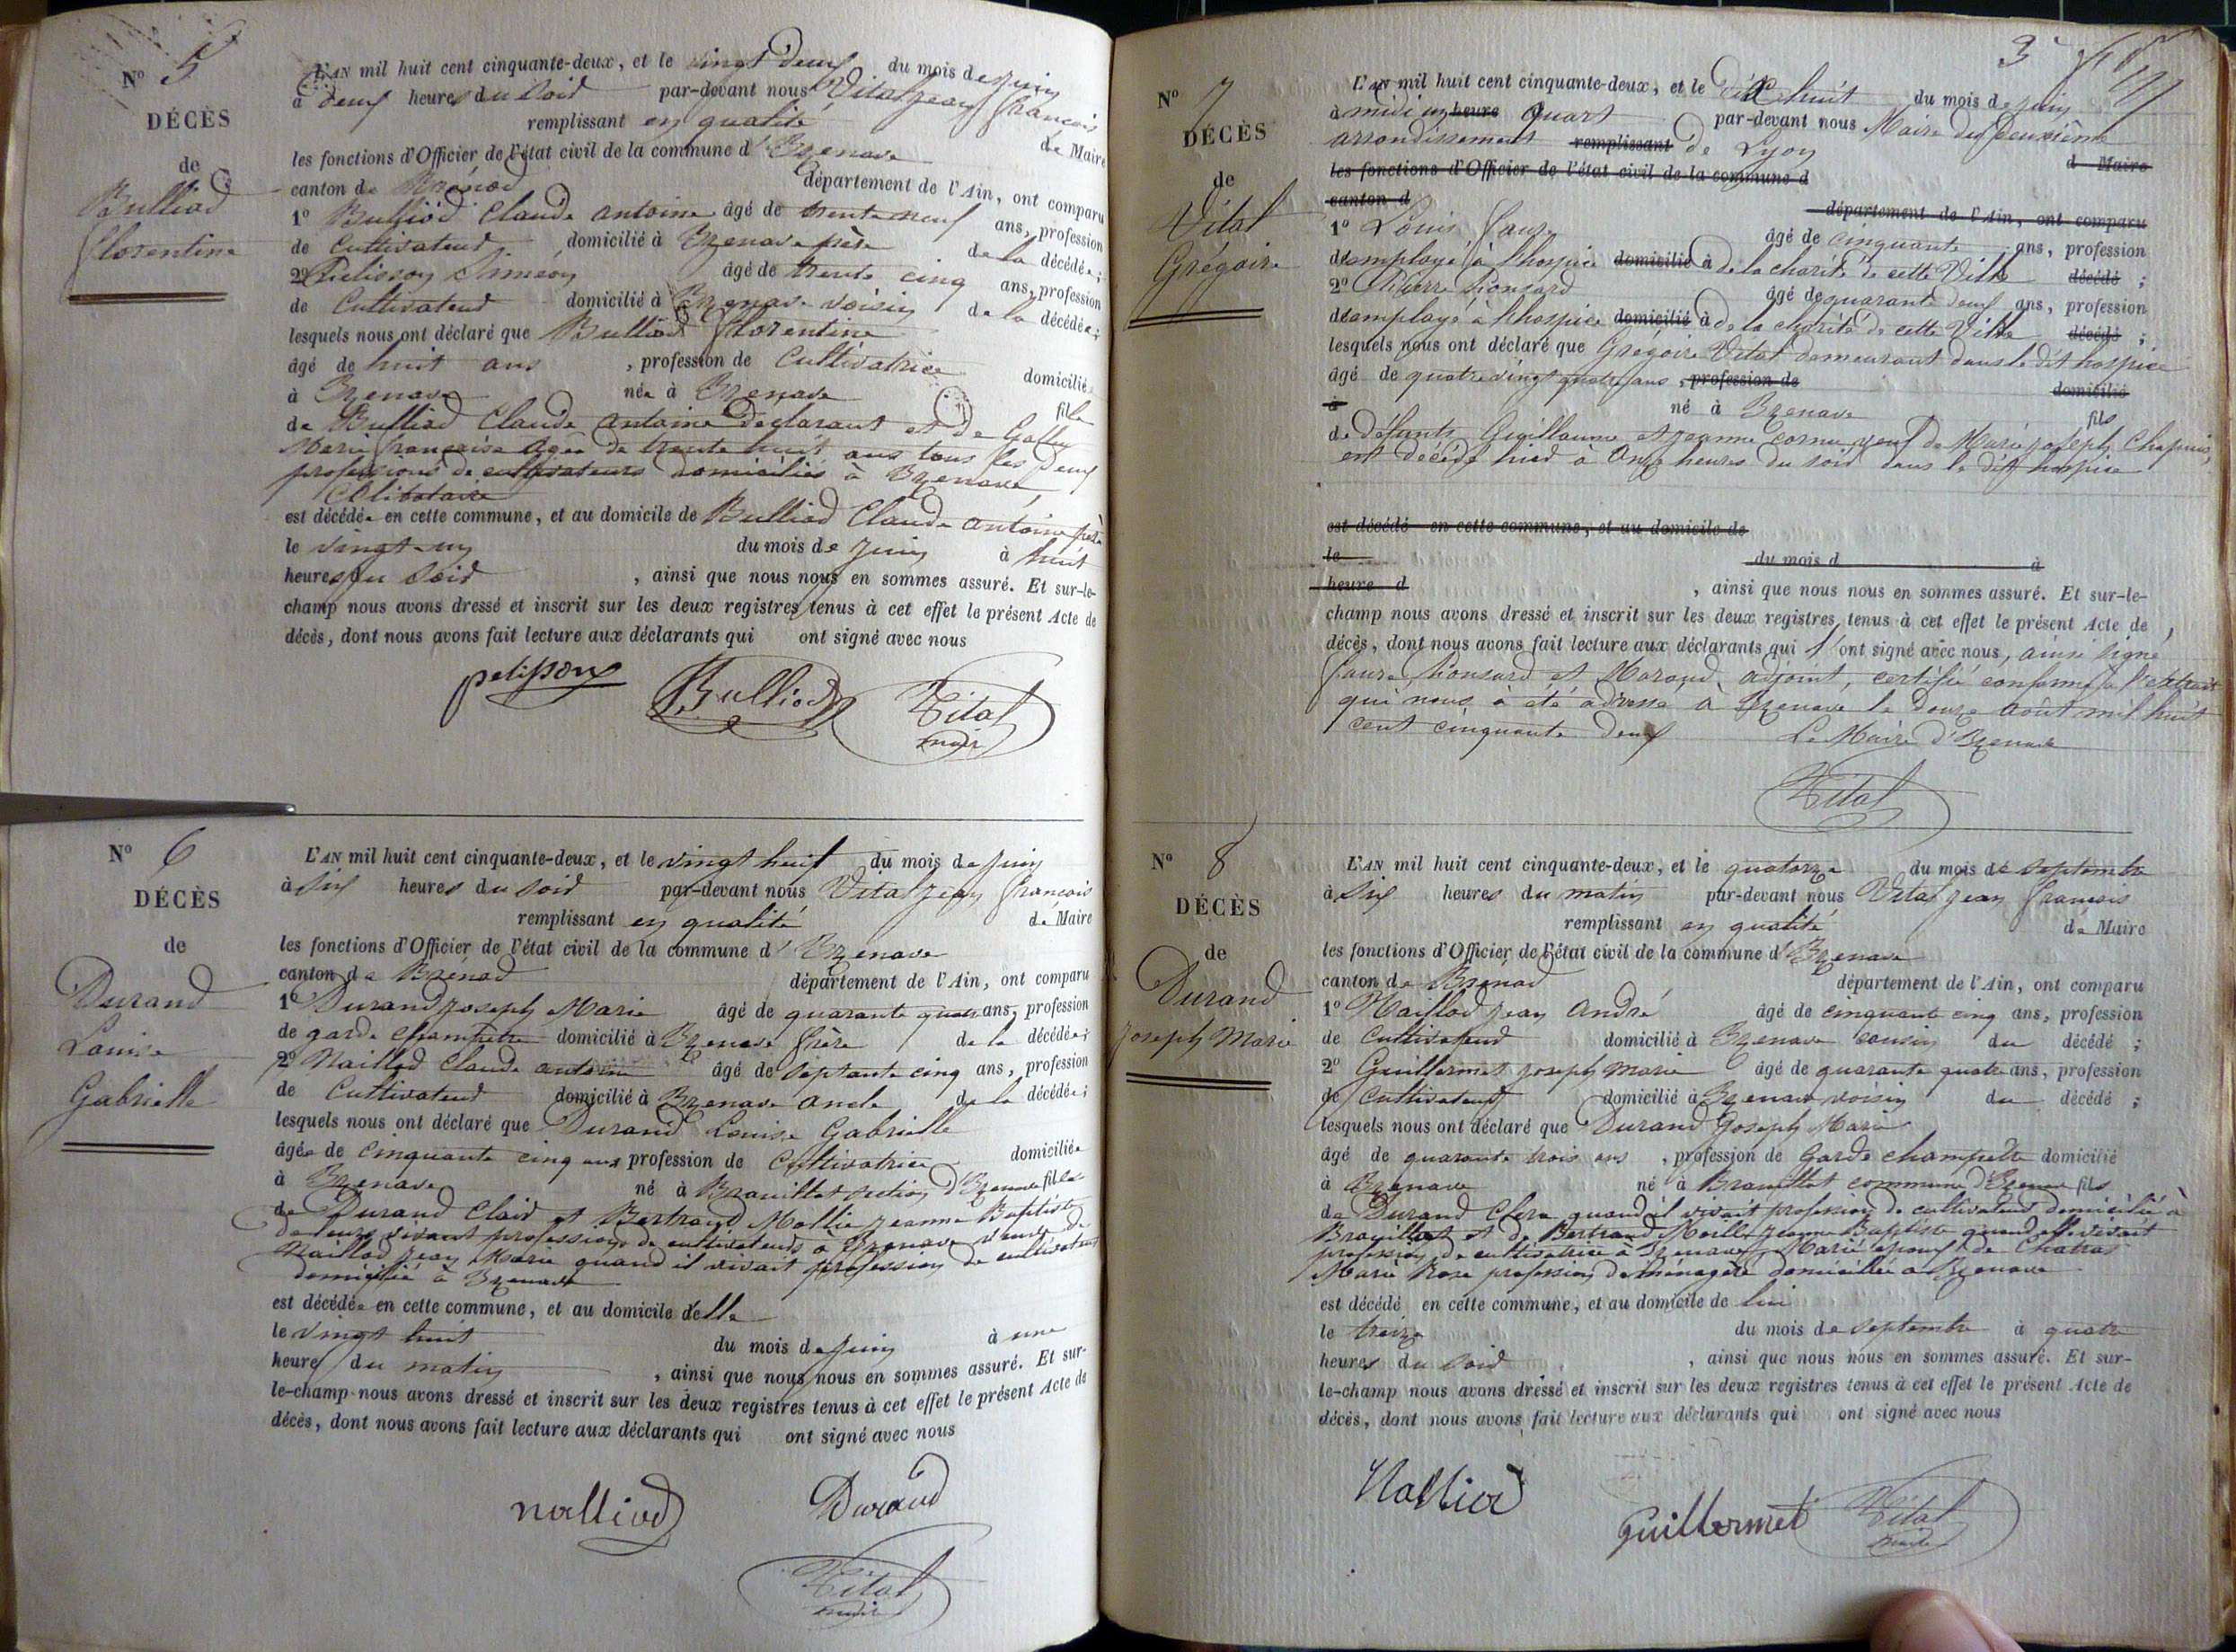 N° 5
DÉCÈS
de
Bulliod
Florentine
L'AN mil huit cent cinquante-deux, et le vingt deux du mois de juin
à deux heures du soir par-devant nous Vital jean françois
remplissant en qualité de Maire
les fonctions d'Officier de l'état civil de la commune d'Izenave
canton de Brénod département de l'Ain, ont comparu
1° Bulliod Claude antoine âgé de trente neuf ans, profession
de Cultivateur domicilié à Izenave père de la décédée;
2° Siméon âgé de trente cinq ans, profession
de Cultivateur domicilié à Izenave voisin de la décédée;
lesquels nous ont déclaré que Bulliod florentine
âgé de huit ans, profession de Cultivatrice domiciliée
à Izenave née à Izenave fille
de Bulliod Claude antoine déclarant et de
Marie françoise agée de trente huit ans tous les deux
professions de cultivateurs domiciliés à Izenave,
Célibataire
est décédée en cette commune, et au domicile de Bulliod Claude antoine père
le vingt-un du mois de juin à huit
heures du soir, ainsi que nous nous en sommes assuré. Et sur-le-
champ nous avons dressé et inscrit sur les deux registres tenus à cet effet le présent Acte de
décès, dont nous avons fait lecture aux déclarants qui ont signé avec nous
pelisson Bulliod Vital
maire
N° 6
DÉCÈS
de
Durand
Louise
Gabrielle
L'AN mil huit cent cinquante-deux, et le vingt huit du mois de juin
à six heures du soir par-devant nous Vital jean françois
remplissant en qualité de Maire
les fonctions d'Officier de l'état civil de la commune d'Izenave
canton de Brénod département de l'Ain, ont comparu
1° Durand joseph Marie âgé de quarante quatre ans, profession
de garde champêtre domicilié à Izenave frère de la décédée;
2° Nalliod Claude antoine âgé de septante cinq ans, profession
de Cultivateur domicilié à Izenave oncle de la décédée;
lesquels nous ont déclaré que Durand Louise Gabrielle
âgée de Cinquante cinq ans profession de Cultivatrice domiciliée
à Izenave né à Braouillet section d'Izenave fille
de Durand Clair et Bertrand Mollie jeanne Baptiste
de leurs vivant professions de cultivateurs à Izenave veuve de
Nalliod jean Marie quand il vivait profession de cultivateur
domicilié à Izenave
est décédée en cette commune, et au domicile d'elle
le vingt huit du mois de juin à une
heure du matin, ainsi que nous nous en sommes assuré. Et sur-
le-champ nous avons dressé et inscrit sur les deux registres tenus à cet effet le présent Acte de
décès, dont nous avons fait lecture aux déclarants qui ont signé avec nous
nalliod Durand
Vital
maire
3
N° 7
DÉCÈS
de
Vital
Grégoire
L'AN mil huit cent cinquante-deux, et le dix huit du mois de juin
à midi un heure quart par-devant nous Maire du deuxième
arrondissement remplissant de Lyon d Maire
les fonctions d'Officier de l'état civil de la commune d
canton d département de l'Ain, ont comparu
1° Louis faure âgé de cinquante ans, profession
d'employé à l'hospice domicilié à de la charité de cette Ville décédé;
2° Pierre Ponsard âgé de quarante deux ans, profession
d'employé à l'hospice domicilié à de la charité de cette Ville décédé;
lesquels nous ont déclaré que Grégoire Vital demeurant dans le dit hospice
âgé de quatre vingt quatre ans, profession de domicilié
à né à Izenave fils
de défunts Guillaume et jeanne cornu veuf de Marie joseph Chapuis,
est décédé hier à onze heures du soir dans le dit hospice
est décédé en cette commune, et au domicile de
le du mois d à
heure d, ainsi que nous nous en sommes assuré. Et sur-le-
champ nous avons dressé et inscrit sur les deux registres tenus à cet effet le présent Acte de
décès, dont nous avons fait lecture aux déclarants qui l'ont signé avec nous, ainsi signé
faure, Ponsard et adjoint, certifié conforme à l'extrait
qui nous à été adressé à Izenave le douze août mil huit
cent cinquante deux Le Maire d'Izenave
Vital
N° 8
DÉCÈS
de
Durand
joseph Marie
L'AN mil huit cent cinquante-deux, et le quatorze du mois de septembre
à six heures du matin par-devant nous Vital jean françois
remplissant en qualité de Maire
les fonctions d'Officier de l'état civil de la commune d'Izenave
canton de Brénod département de l'Ain, ont comparu
1° Nalliod jean andré âgé de cinquante cinq ans, profession
de Cultivateur domicilié à Izenave cousin du décédé;
2° Guillermet joseph marie âgé de quarante quatre ans, profession
de Cultivateur domicilié à Izenave voisin du décédé;
lesquels nous ont déclaré que Durand Joseph Marie
âgé de quarante trois ans, profession de Garde champêtre domicilié
à Izenave né à Braouillet commune d'Izenave fils
de Durand Clere quand il vivait profession de cultivateur domicilié à
Braouillet et de Bertrand Moille jeanne Baptiste quand elle vivait
profession de cultivatrice à Izenave, Marié époux de Chatras
Marie Rose profession de ménagère domiciliée à Izenave
est décédé en cette commune, et au domicile de lui
le treize du mois de septembre à quatre
heures du soir, ainsi que nous nous en sommes assuré. Et sur-
le-champ nous avons dressé et inscrit sur les deux registres tenus à cet effet le présent Acte de
décès, dont nous avons fait lecture aux déclarants qui ont signé avec nous
Nalliod Guillermet Vital
maire